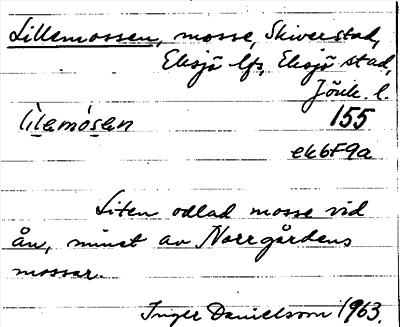 Lillemossen, mosse, Skiverstad,
Eksjö lfs, Eksjö stad,
Jönk. l.
lilemósen 155
ek6f9a
Liten odlad mosse vid
ån, minst av Norrgårdens
mossar.
Inger Danielsson 1963.